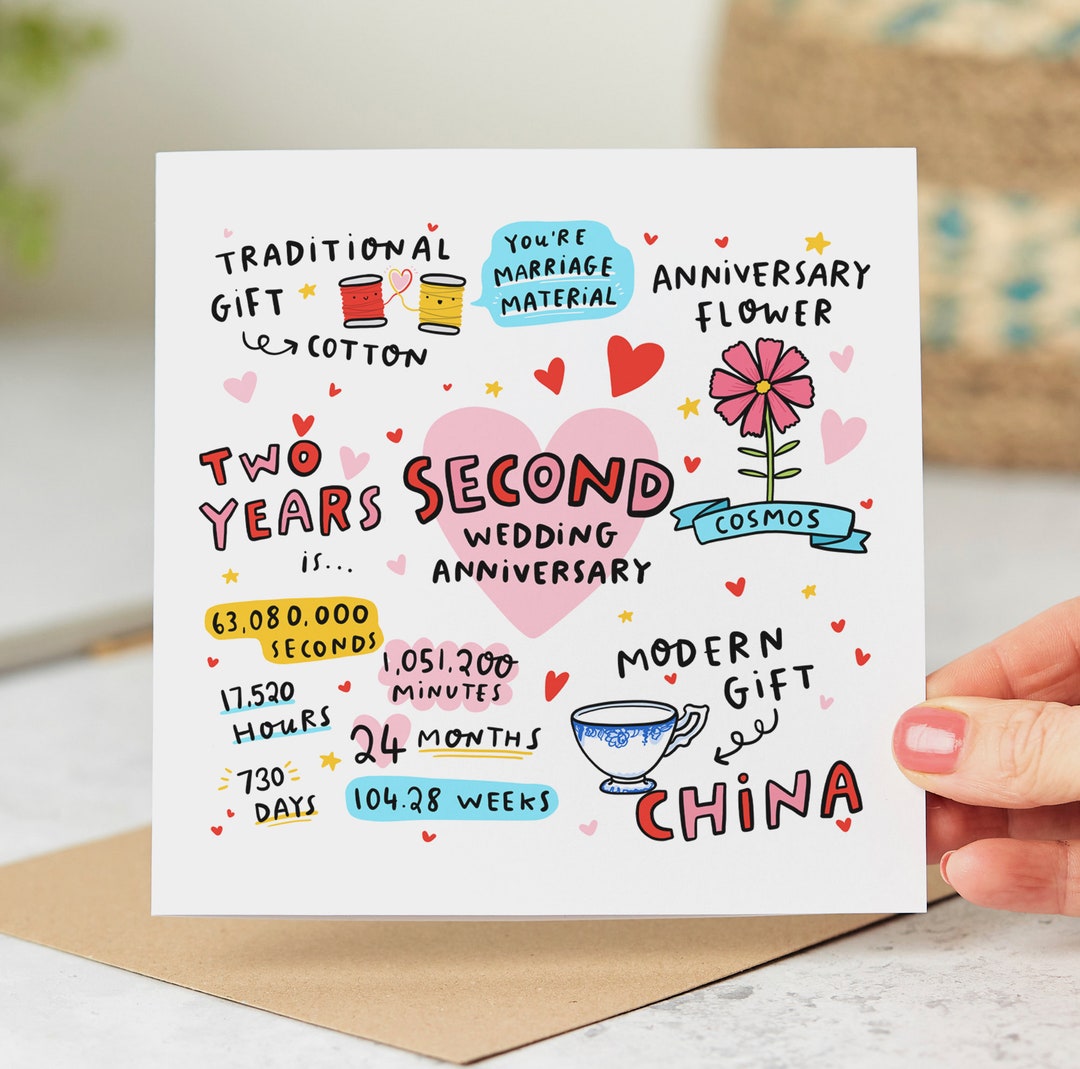 TRADITIONAL
GIFT
COTTON
YOU'RE
MARRIAGE
MATERIAL
ANNIVERSARY
FLOWER
COSMOS
TWO
YEARS
is...
SECOND
WEDDING
ANNIVERSARY
63,080,000
SECONDS
1,051,200
MINUTES
17,520
HOURS
24 MONTHS
730
DAYS
104.28 WEEKS
MODERN
GIFT
CHINA